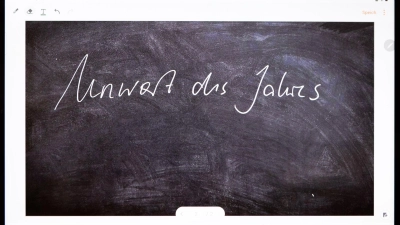 Unwort des Jahres